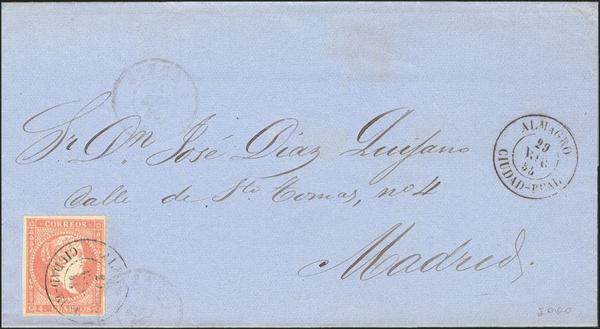 Sr. Dn. José Diaz Quijano
Calle de Sto Tomas, no 4
Madrid.
ALMAGRO
29
DIC
CIUDAD-REAL
CORREOS
CUARTOS
2000